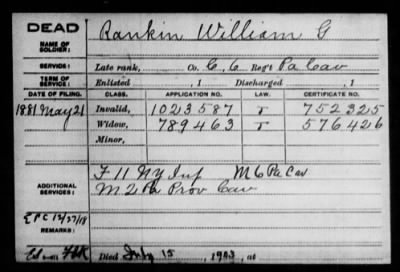 DEAD
NAME OF SOLDIER: Rankin William G
SERVICE: Late rank, Co. C, 6 Reg't Pa Cav
TERM OF SERVICE: Enlisted , 1 Discharged , 1
DATE OF FILING. CLASS. APPLICATION NO. LAW. CERTIFICATE NO.
1881 May 21 Invalid, 1023587 752325
Widow, 789463 576426
Minor,
ADDITIONAL SERVICES: F 11 NY Inf M 6 Pa Cav
M 2 Pa Prov Cav
REMARKS:
Died July 15, 1903, at